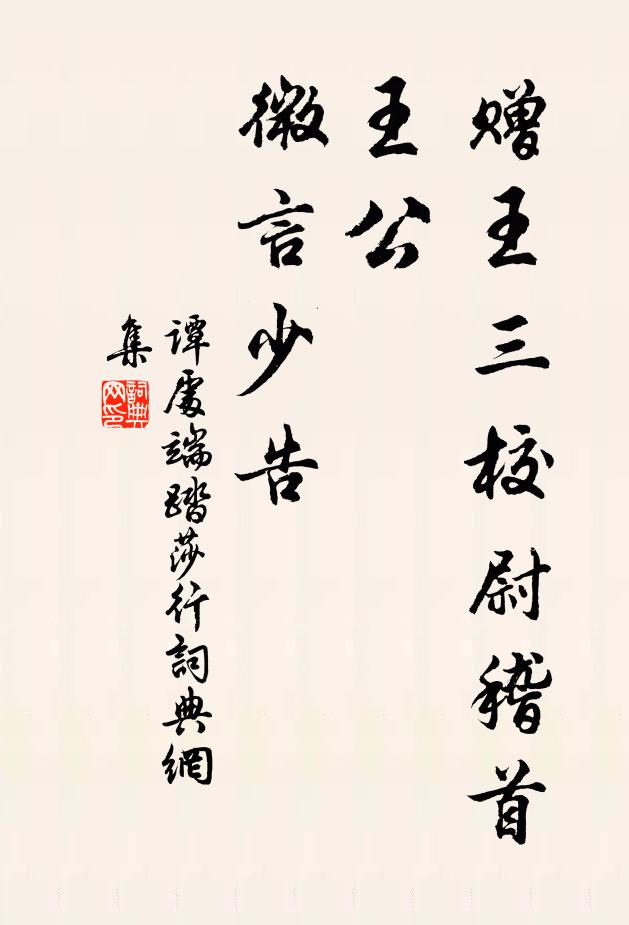 赠王三校尉稽首
王公
微言少告
谭處端踏莎行詞典網
集
詞典
网印